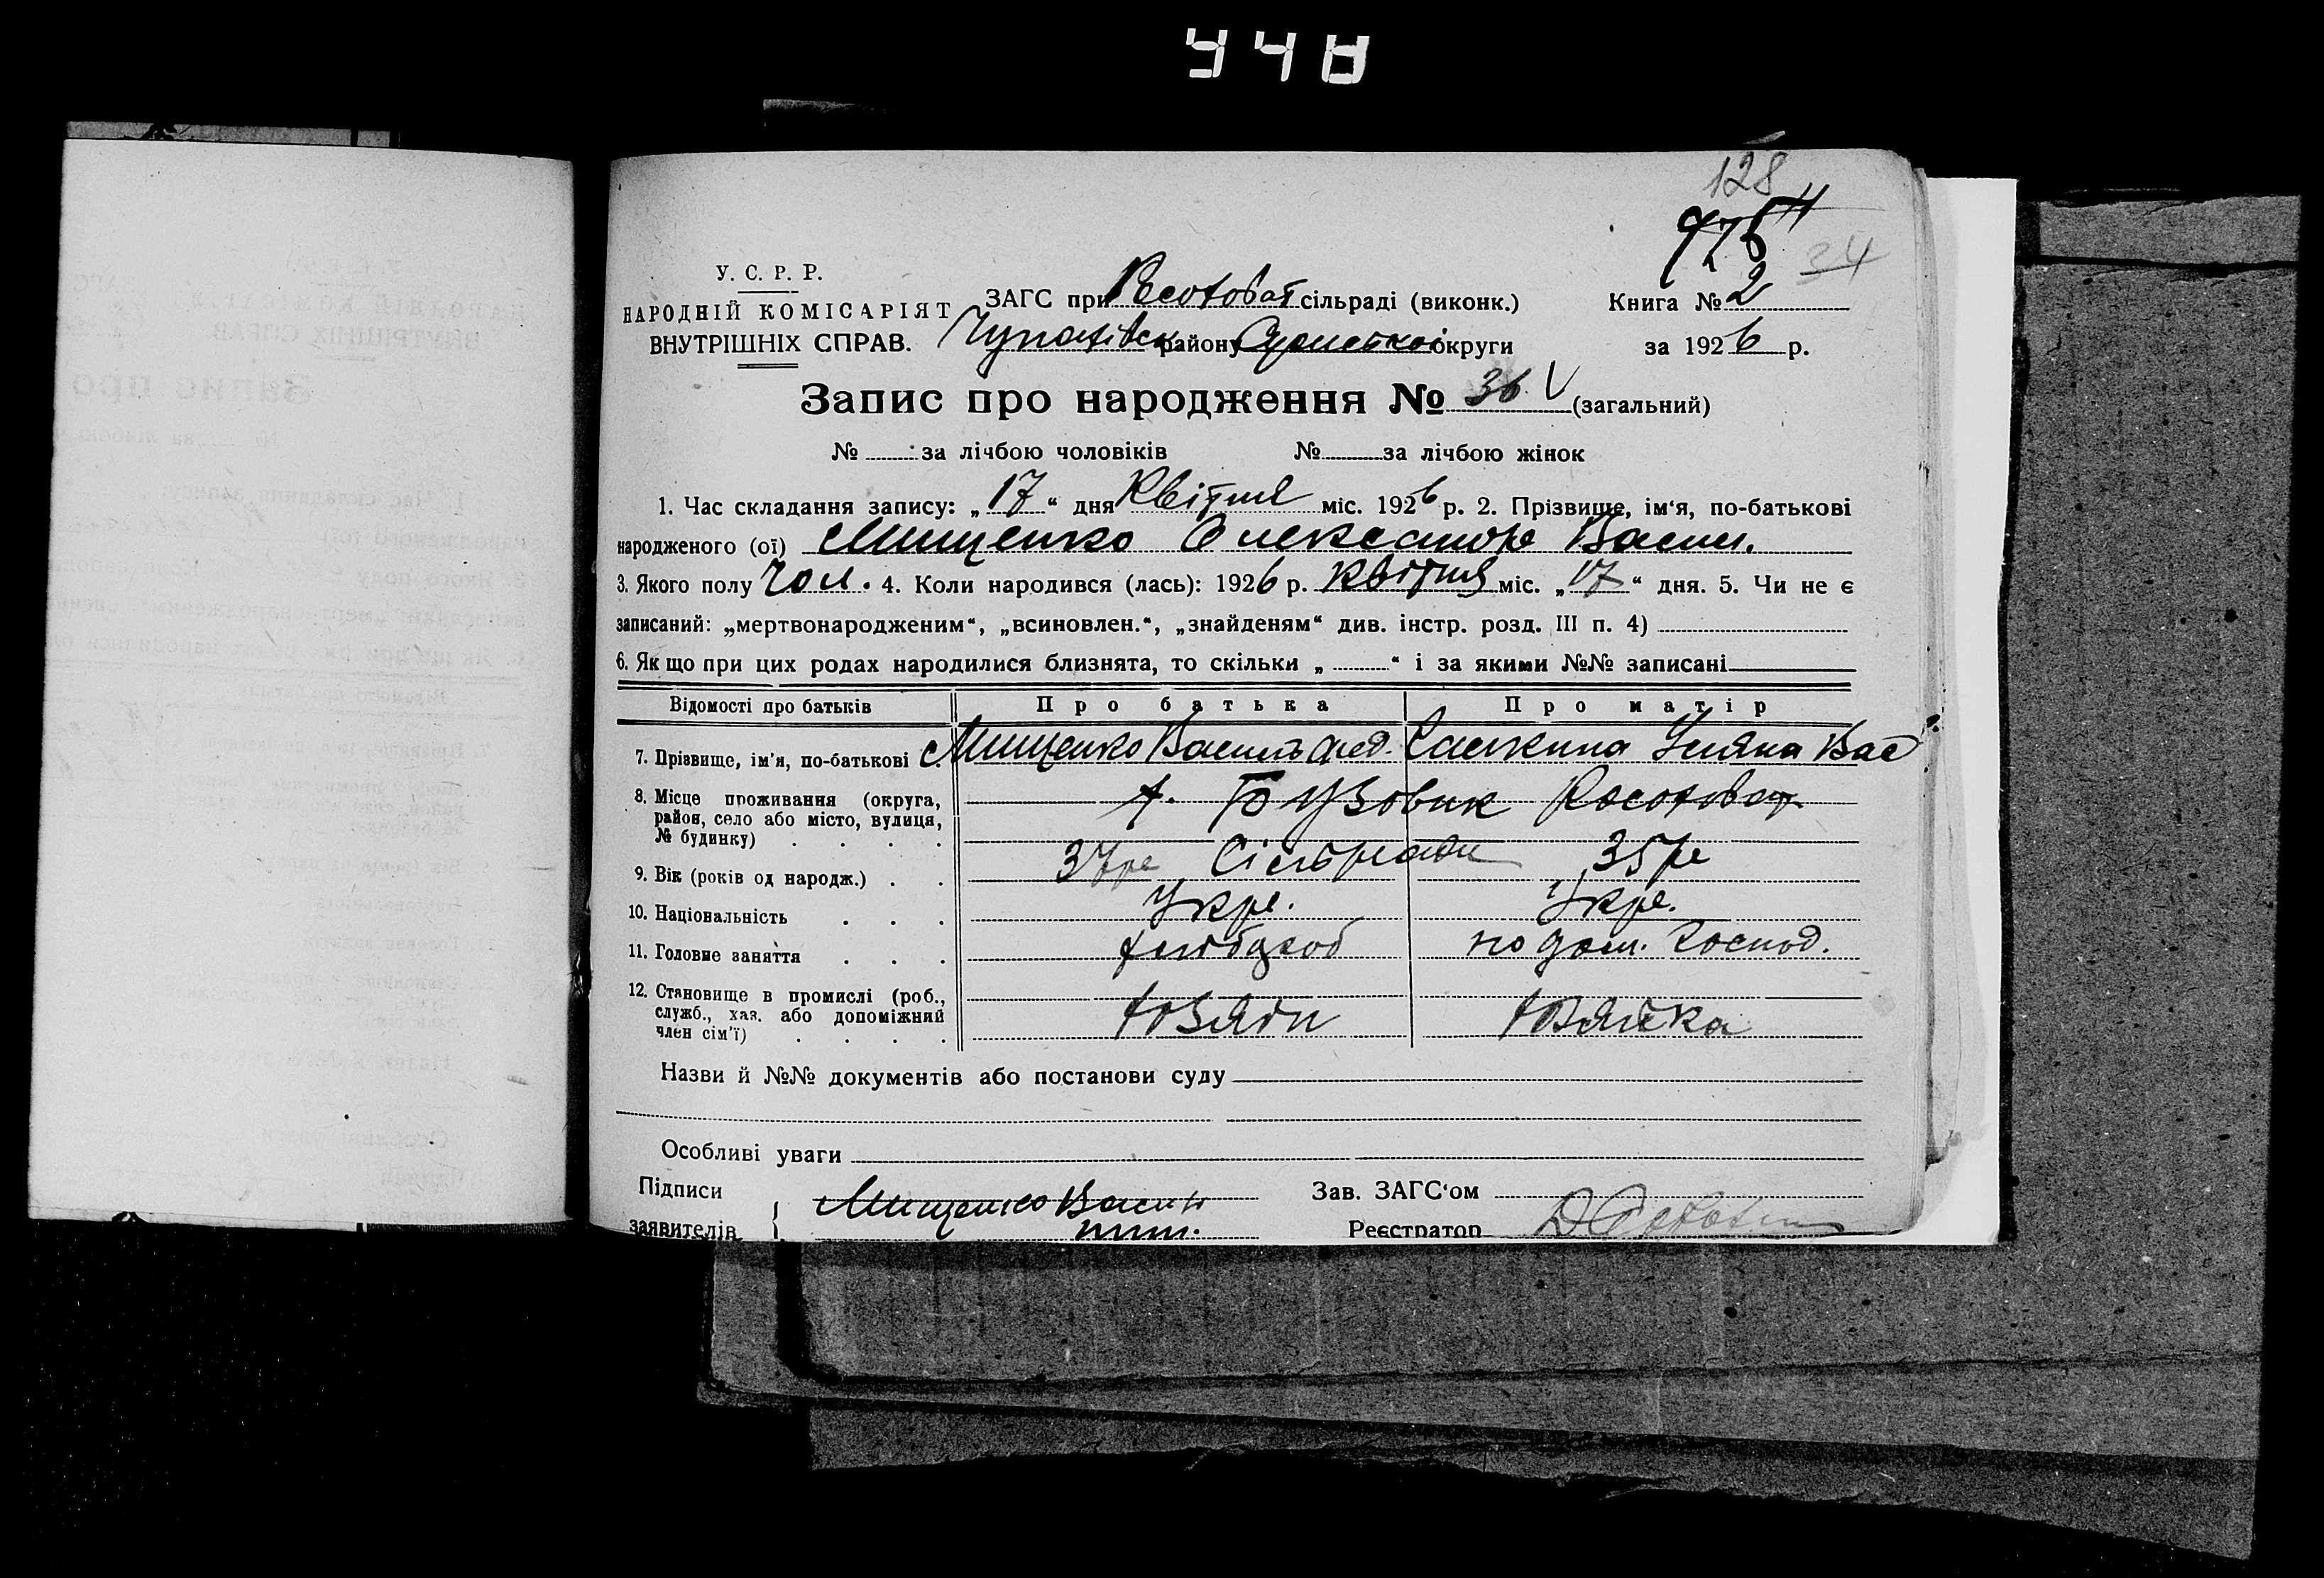 128
34
У. С. Р. Р.
НАРОДНІЙ КОМІСАРІЯТ
ВНУТРІШНІХ СПРАВ.
ЗАГС при Росоховат сільраді (виконк.)
Чупахівськ району Сумської округи
Книга № 2
за 1926 р.
Запис про народження № 36 V (загальний)
№ за лічбою чоловіків № за лічбою жінок
1. Час складання запису: „17“ дня Квітня міс. 1926 р. 2. Прізвище, ім‘я, по-батькові
народженого (ої) Мищенко Олександр Васил.
3. Якого полу Чол. 4. Коли народився (лась): 1926 р. Квітня міс. „17“ дня. 5. Чи не є
записаний: „мертвонародженим“, „всиновлен.“, „знайденям“ див. інстр. розд. III п. 4)
6. Як що при цих родах народилися близнята, то скільки „ “ і за якими №№ записані
Відомості про батьків Про батька Про матір
7. Прізвище, ім‘я, по-батькові Мищенко Василь Фед. Уляна Вас
8. Місце проживання (округа, район, село або місто, вулиця, № будинку) х. Бузовик Росоховат
Сільради
9. Вік (років од народж.) 37р 35р
10. Національність Укр. Укр.
11. Головне заняття хлібороб по дом. господ.
12. Становище в промислі (роб., служб., хаз. або допоміжний член сім'ї) хазяїн хазяйка
Назви й №№ документів або постанови суду
Особливі уваги
Підписи
заявителів
Мищенко Васил
Зав. ЗАГС‘ом
Реєстратор